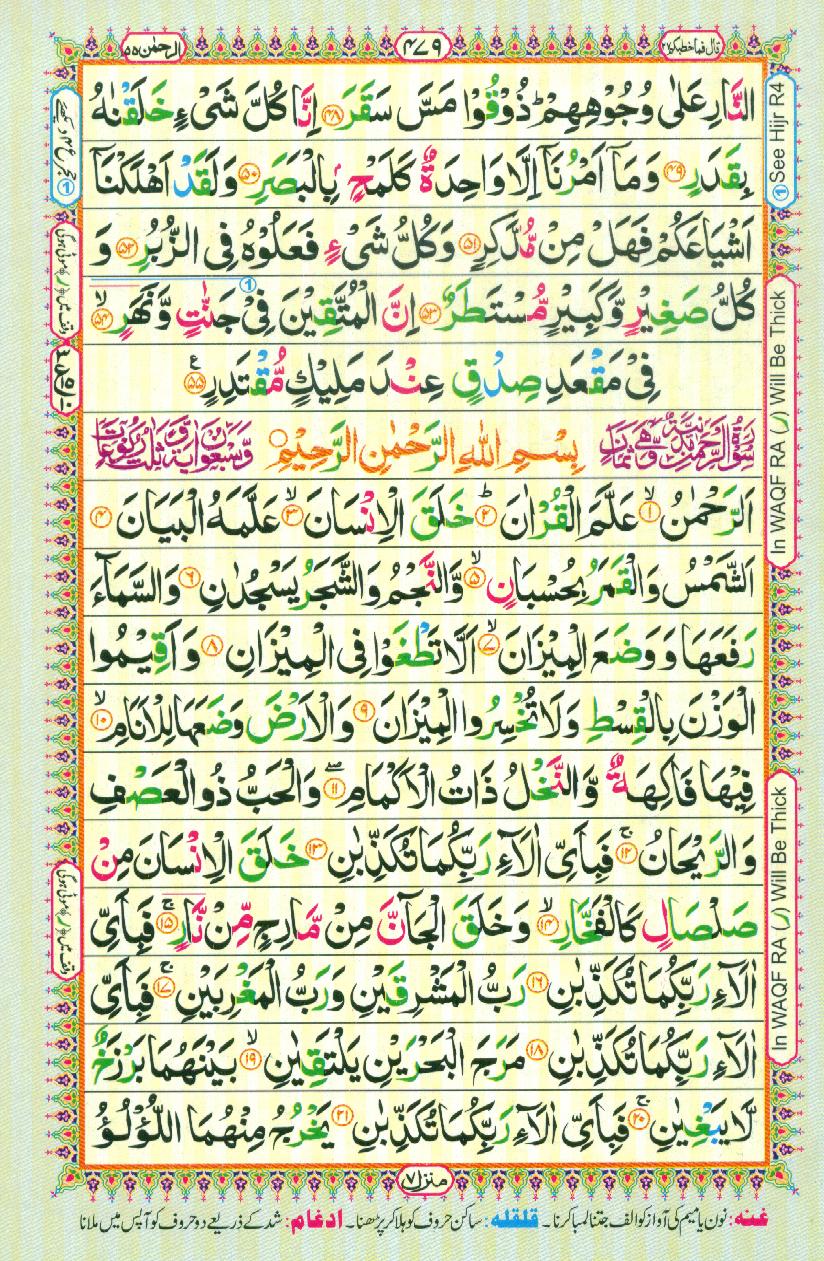 قال فما خطبكم ٢٧
٤٧٩
الرحمٰن ٥٥
النَّارِ عَلٰى وُجُوْهِهِمْ ؕ ذُوْقُوْا مَسَّ سَقَرَ ﴿۴۸﴾ اِنَّا كُلَّ شَیْءٍ خَلَقْنٰهُ
بِقَدَرٍ ﴿۴۹﴾ وَمَاۤ اَمْرُنَاۤ اِلَّا وَاحِدَةٌ كَلَمْحٍۭ بِالْبَصَرِ ﴿۵۰﴾ وَلَقَدْ اَهْلَكْنَاۤ
اَشْیَاعَكُمْ فَهَلْ مِنْ مُّدَّكِرٍ ﴿۵۱﴾ وَكُلُّ شَیْءٍ فَعَلُوْهُ فِی الزُّبُرِ ﴿۵۲﴾ وَ
كُلُّ صَغِیْرٍ وَّكَبِیْرٍ مُّسْتَطَرٌ ﴿۵۳﴾ اِنَّ الْمُتَّقِیْنَ فِیْ جَنّٰتٍ وَّنَهَرٍ ﴿۵۴﴾ۙ
فِیْ مَقْعَدِ صِدْقٍ عِنْدَ مَلِیْكٍ مُّقْتَدِرٍ ﴿۵۵﴾
بِسْمِ اللّٰهِ الرَّحْمٰنِ الرَّحِیْمِ
اَلرَّحْمٰنُ ﴿۱﴾ۙ عَلَّمَ الْقُرْاٰنَ ﴿۲﴾ؕ خَلَقَ الْاِنْسَانَ ﴿۳﴾ۙ عَلَّمَهُ الْبَیَانَ ﴿۴﴾
اَلشَّمْسُ وَالْقَمَرُ بِحُسْبَانٍ ﴿۵﴾ۙ وَّالنَّجْمُ وَالشَّجَرُ یَسْجُدٰنِ ﴿۶﴾ وَالسَّمَآءَ
رَفَعَهَا وَوَضَعَ الْمِیْزَانَ ﴿۷﴾ۙ اَلَّا تَطْغَوْا فِی الْمِیْزَانِ ﴿۸﴾ وَاَقِیْمُوا
الْوَزْنَ بِالْقِسْطِ وَلَا تُخْسِرُوا الْمِیْزَانَ ﴿۹﴾ وَالْاَرْضَ وَضَعَهَا لِلْاَنَامِ ﴿۱۰﴾ۙ
فِیْهَا فَاكِهَةٌ وَّالنَّخْلُ ذَاتُ الْاَكْمَامِ ﴿۱۱﴾ۖ وَالْحَبُّ ذُو الْعَصْفِ
وَالرَّیْحَانُ ﴿۱۲﴾ۚ فَبِاَیِّ اٰلَآءِ رَبِّكُمَا تُكَذِّبٰنِ ﴿۱۳﴾ خَلَقَ الْاِنْسَانَ مِنْ
صَلْصَالٍ كَالْفَخَّارِ ﴿۱۴﴾ۙ وَخَلَقَ الْجَآنَّ مِنْ مَّارِجٍ مِّنْ نَّارٍ ﴿۱۵﴾ۚ فَبِاَیِّ
اٰلَآءِ رَبِّكُمَا تُكَذِّبٰنِ ﴿۱۶﴾ رَبُّ الْمَشْرِقَیْنِ وَرَبُّ الْمَغْرِبَیْنِ ﴿۱۷﴾ۚ فَبِاَیِّ
اٰلَآءِ رَبِّكُمَا تُكَذِّبٰنِ ﴿۱۸﴾ مَرَجَ الْبَحْرَیْنِ یَلْتَقِیٰنِ ﴿۱۹﴾ۙ بَیْنَهُمَا بَرْزَخٌ
لَّا یَبْغِیٰنِ ﴿۲۰﴾ۚ فَبِاَیِّ اٰلَآءِ رَبِّكُمَا تُكَذِّبٰنِ ﴿۲۱﴾ یَخْرُجُ مِنْهُمَا اللُّؤْلُؤُ
منزل ٧
غنہ: نون یا میم کی آواز کو الف جتنا لمبا کرنا۔ قلقلہ: ساکن حروف کو ہلا کر پڑھنا۔ ادغام: شد کے ذریعے دو حروف کو آپس میں ملانا
① See Hijr R4
In WAQF RA (ر) Will Be Thick
In WAQF RA (ر) Will Be Thick
وقف میں ﴿ر﴾ موٹی ہوگی
وقف میں ﴿ر﴾ موٹی ہوگی